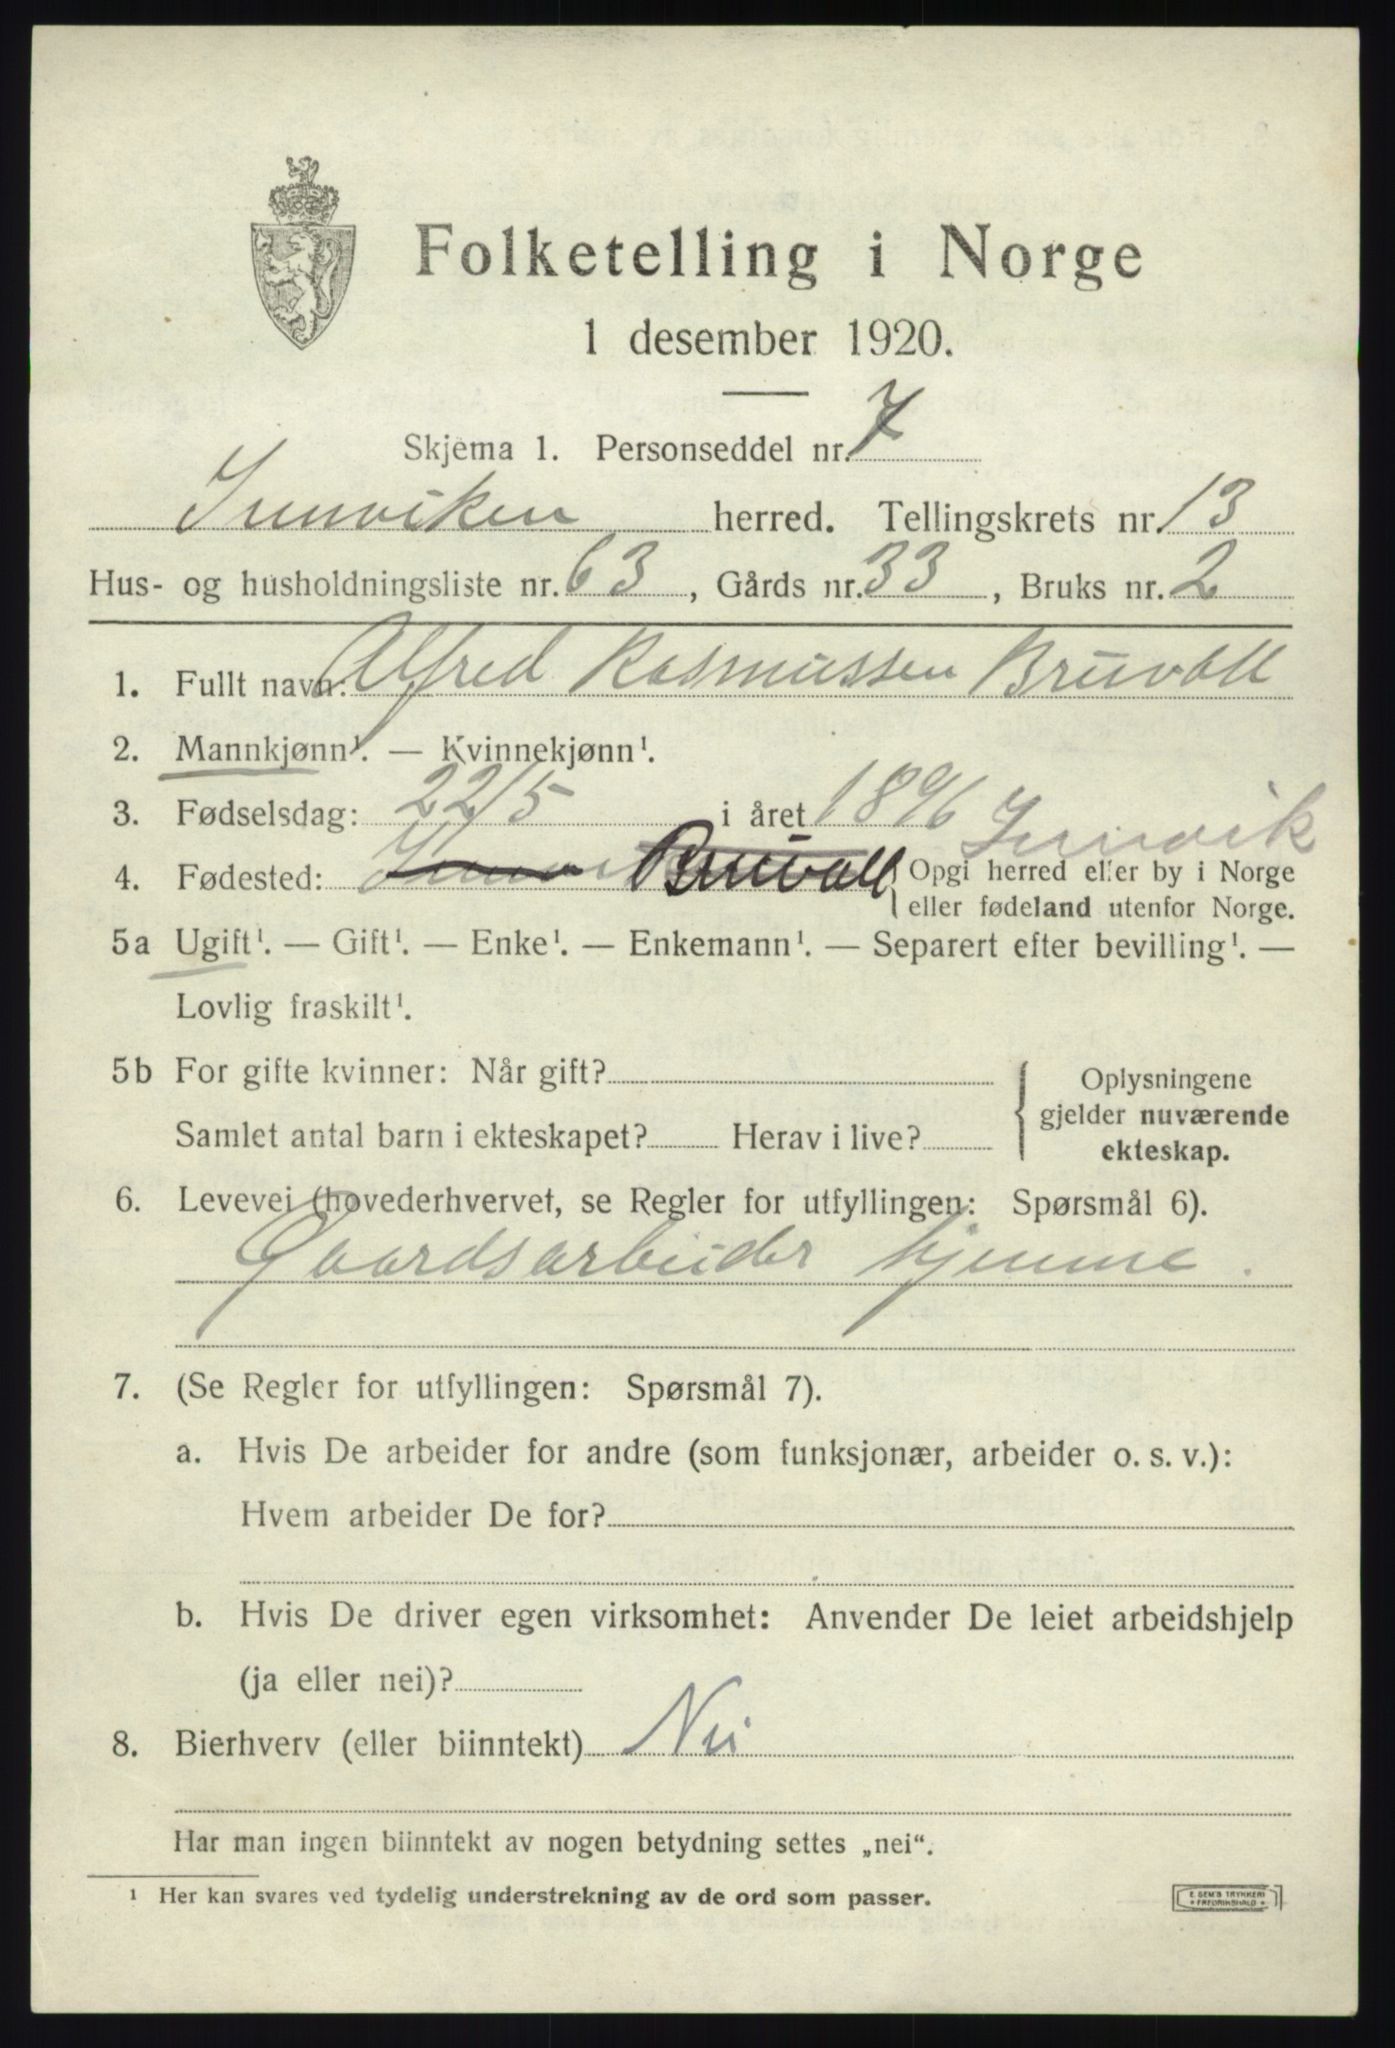 Folketelling i Norge
1 desember 1920.
Skjema 1. Personseddel nr. 7
Innviken herred. Tellingskrets nr. 13
Hus- og husholdningsliste nr. 63, Gårds nr. 33, Bruks nr. 2
1. Fullt navn: Alfred Rasmussen Bruvoll
2. Mannkjønn¹. — Kvinnekjønn¹.
3. Fødselsdag: 22/5 i året 1896 Innvik
4. Fødested: Innvik Bruvoll { Opgi herred eller by i Norge
eller fødeland utenfor Norge.
5a Ugift¹. — Gift¹. — Enke¹. — Enkemann¹. — Separert efter bevilling¹. —
Lovlig fraskilt¹.
5b For gifte kvinner: Når gift? { Oplysningene
gjelder nuværende
ekteskap.
Samlet antal barn i ekteskapet? Herav i live?
6. Levevei (hovederhvervet, se Regler for utfyllingen: Spørsmål 6).
Gaardsarbeider hjemme.
7. (Se Regler for utfyllingen: Spørsmål 7).
a. Hvis De arbeider for andre (som funksjonær, arbeider o. s. v.):
Hvem arbeider De for?
b. Hvis De driver egen virksomhet: Anvender De leiet arbeidshjelp
(ja eller nei)?
8. Bierhverv (eller biinntekt) Nei
Har man ingen biinntekt av nogen betydning settes „nei“.
¹ Her kan svares ved tydelig understrekning av de ord som passer.
E. SEM'S TRYKKERI
FREDRIKSHALD